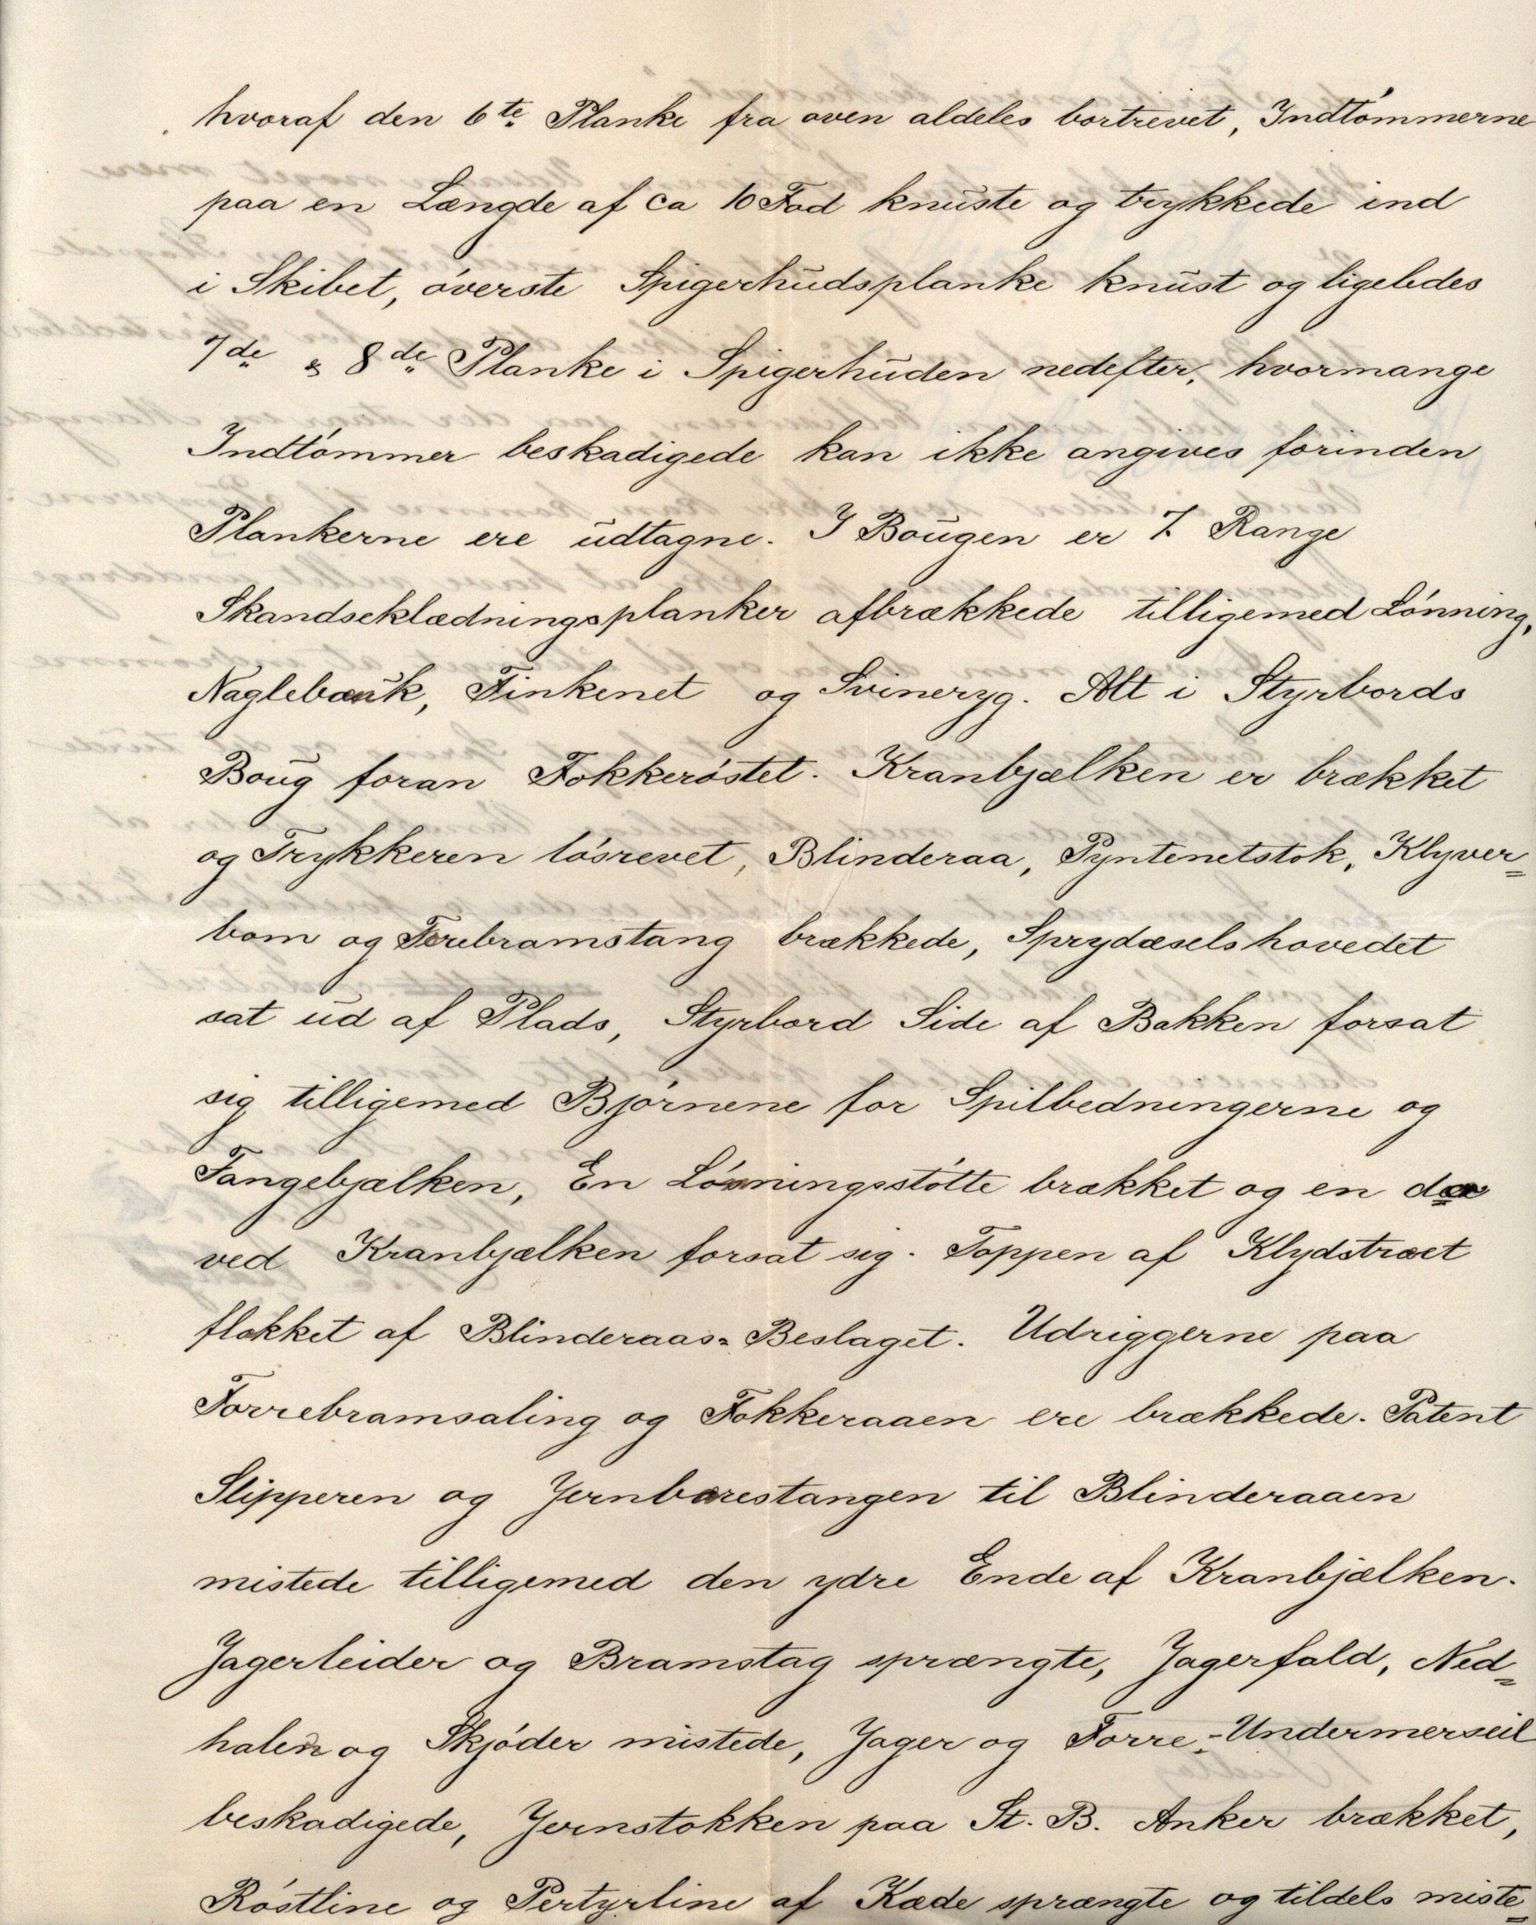 hvoraf den 6te Planke fra oven aldeles bortrevet, Indtømmerne
paa en Længde af ca 10 Fod knuste og trykkede ind
i Skibet, øverste Spigerhudsplanke knust og ligeledes
7de & 8de Planke i Spigerhuden nedefter, hvormange
Indtømmer beskadigede kan ikke angives førinden
Plankerne ere udtagne. I Bougen er 7 Range
Skandseklædningsplanker afbrækkede tilligemed Lønning,
Naglebænk, Finkenet og Svineryg. Alt i Styrbords
Boug foran Fokkerøstet. Kranbjælken er brækket
og Trykkeren løsrevet, Blinderaa, Pyntenetstok, Klyver=
bom og Forebramstang brækkede, Sprydæselshovedet
sat ud af Plads, Styrbord Side af Bakken forsat
sig tilligemed Bjørnene for Spilbedningerne og
Fangebjælken, En Lønningsstøtte brækket og en der
ved Kranbjælken forsat sig. Toppen af Klydstræet
flækket af Blinderaas=Beslaget. Udriggerne paa
Forrebramsaling og Fokkeraaen ere brækkede. Patent
Slipperen og Jernbærestangen til Blinderaaen
mistede tilligemed den ydre Ende af Kranbjælken.
Jagerleider og Bramstag sprængte, Jagerfald, Ned=
haler og Skjøder mistede, Jager og Forre=Undermerseil
beskadigede, Jernstokken paa St. B. Anker brækket,
Røstline og Pertyrline af Kæde sprængte og tildels miste=